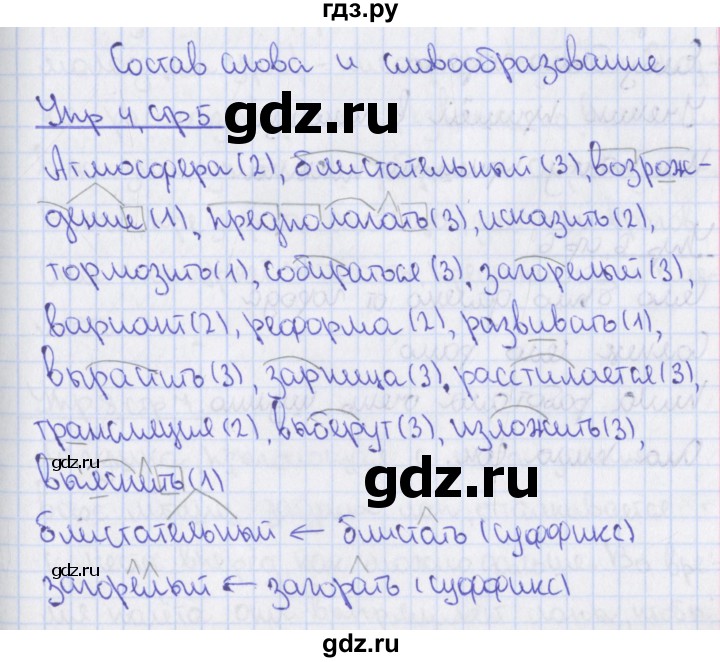 гдз.ру
Состав слова и словообразование
Упр 4, стр 5
gdz.ru
Атмосфера (2), блистательный (3), возрож-
дение (1), предполагать (3), исказить (2),
тормозить (1), собираться (3), загорелый (3),
вариант (2), реформа (2), развивать (1),
вырастить (3), зарница (3), расстилается (3),
трансляция (2), выберут (3), изложить (3),
gdz.ru
выяснить (1)
gdz.ru
блистательный ← блистать (суффикс)
загорелый ← загорать (суффикс)
gdz.ru
gdz.ru